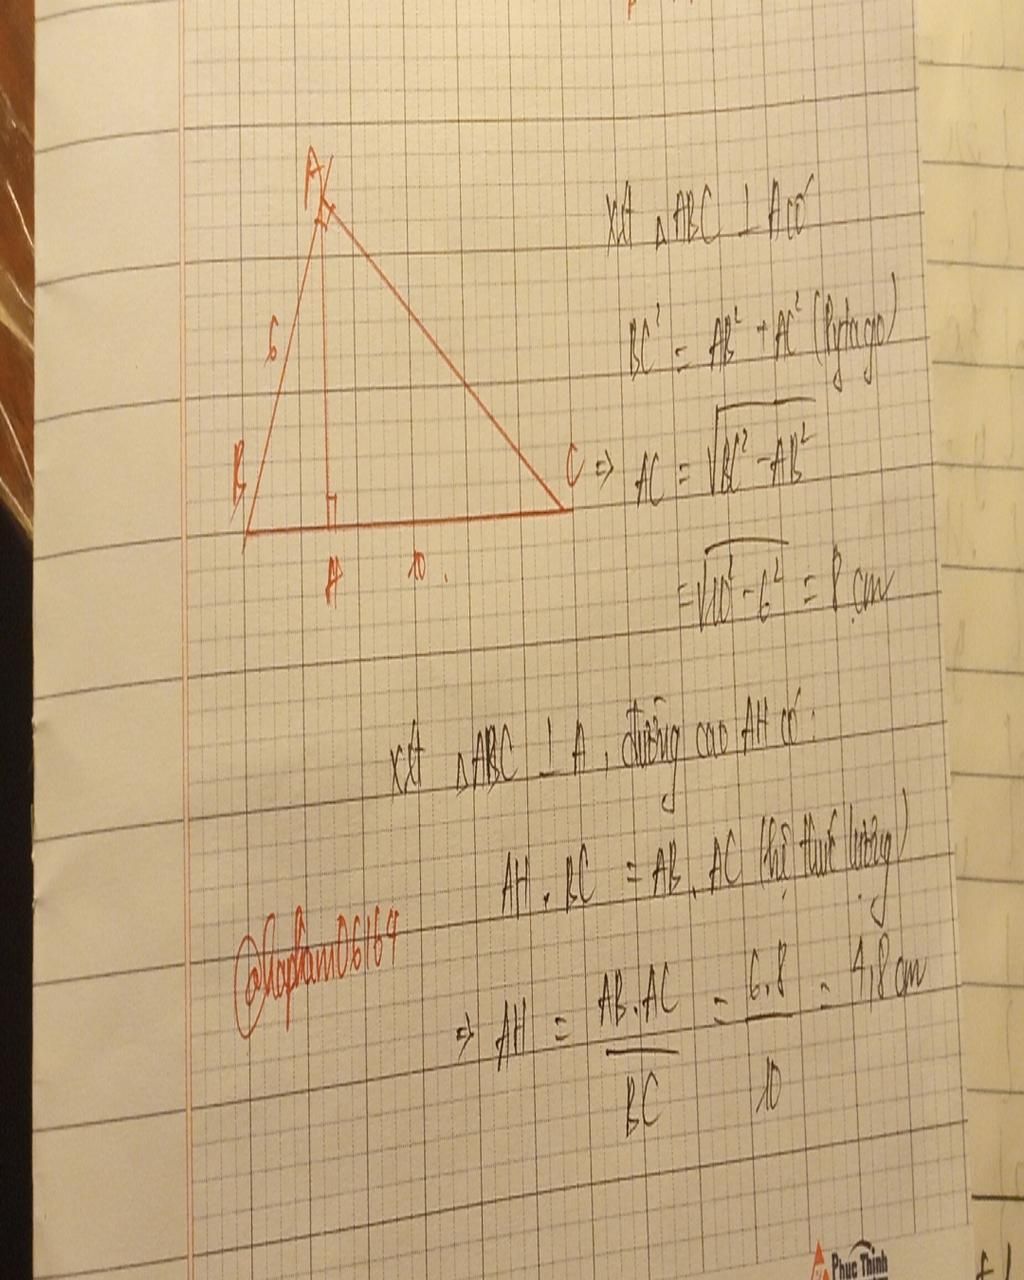 A
6
B
C
H
10
xét △ABC ⊥ A có
BC² = AB² + AC² (Pytago)
⇒ AC = √BC² - AB²
= √10² - 6² = 8 cm
xét △ABC ⊥ A, đường cao AH có:
AH . BC = AB . AC (hệ thức lượng)
@hapham06164
⇒ AH = AB.AC / BC = 6.8 / 10 = 4,8 cm
Phuc Thinh